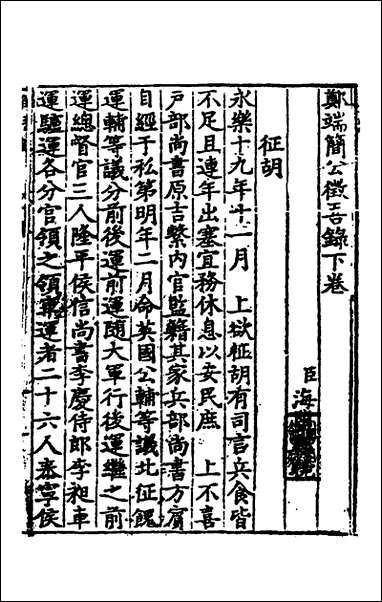 鄭端簡公徵吾錄下卷
臣海
征胡
永樂十九年十一月　上欲征胡有司言兵食皆
不足且連年出塞宜務休息以安民庶　上不喜
戶部尚書原吉繫內官監籍其家兵部尚書方賔
自經于私第明年二月命英國公輔等議北征餽
運輔等議分前後運前運随大軍行後運繼之前
運總督官三人隆平侯信尚書李慶侍郎李昶車
運驢運各分官領之領車運者二十六人泰寧侯